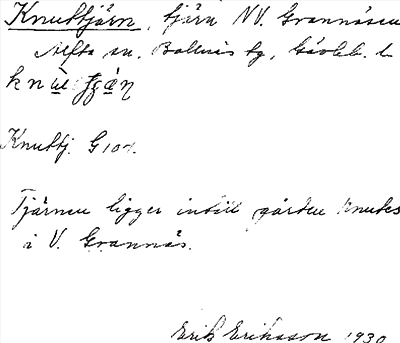 Knuttjärn, tjärn NV. Grannåsen
Alfta sn. Bollnäs tg, Gävleb. l.
Knuttj. G 104.
Tjärnen ligger intill gården Knutes
i V. Grannäs.
Erik Eriksson 1930